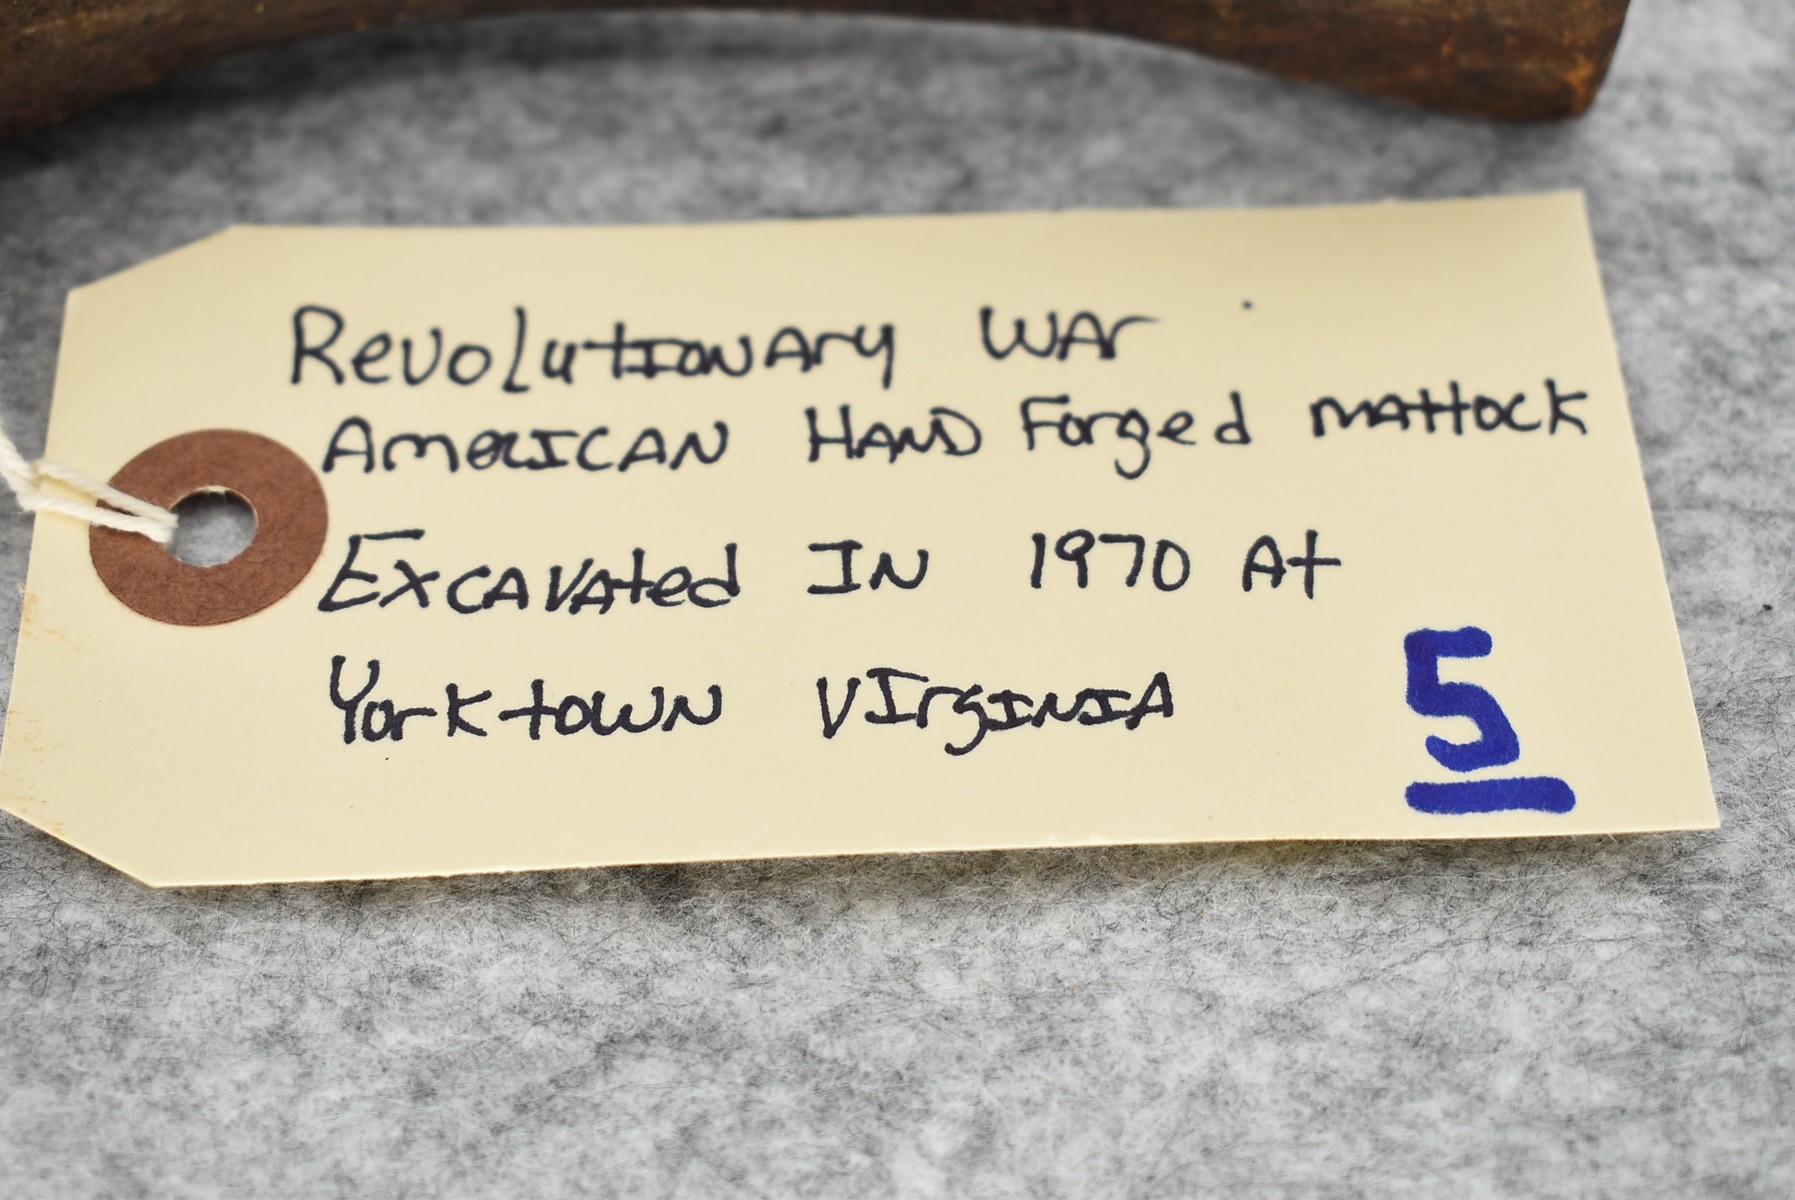 Revolutionary War
American Hand Forged Mattock
Excavated In 1970 At
Yorktown Virginia
5